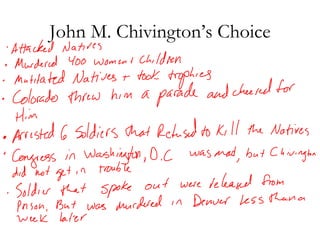 John M. Chivington's Choice
· Attacked Natives
· Murdered 400 women + children
· Mutilated Natives + took trophies
· Colorado threw him a parade and cheered for
Him
· Arrested 6 Soldiers that Refused to Kill the Natives
· Congress in Washington, D.C was mad, but Chivington
did not get in trouble
· Soldier that spoke out were released from
Prison, But was murdered in Denver less than a
week later